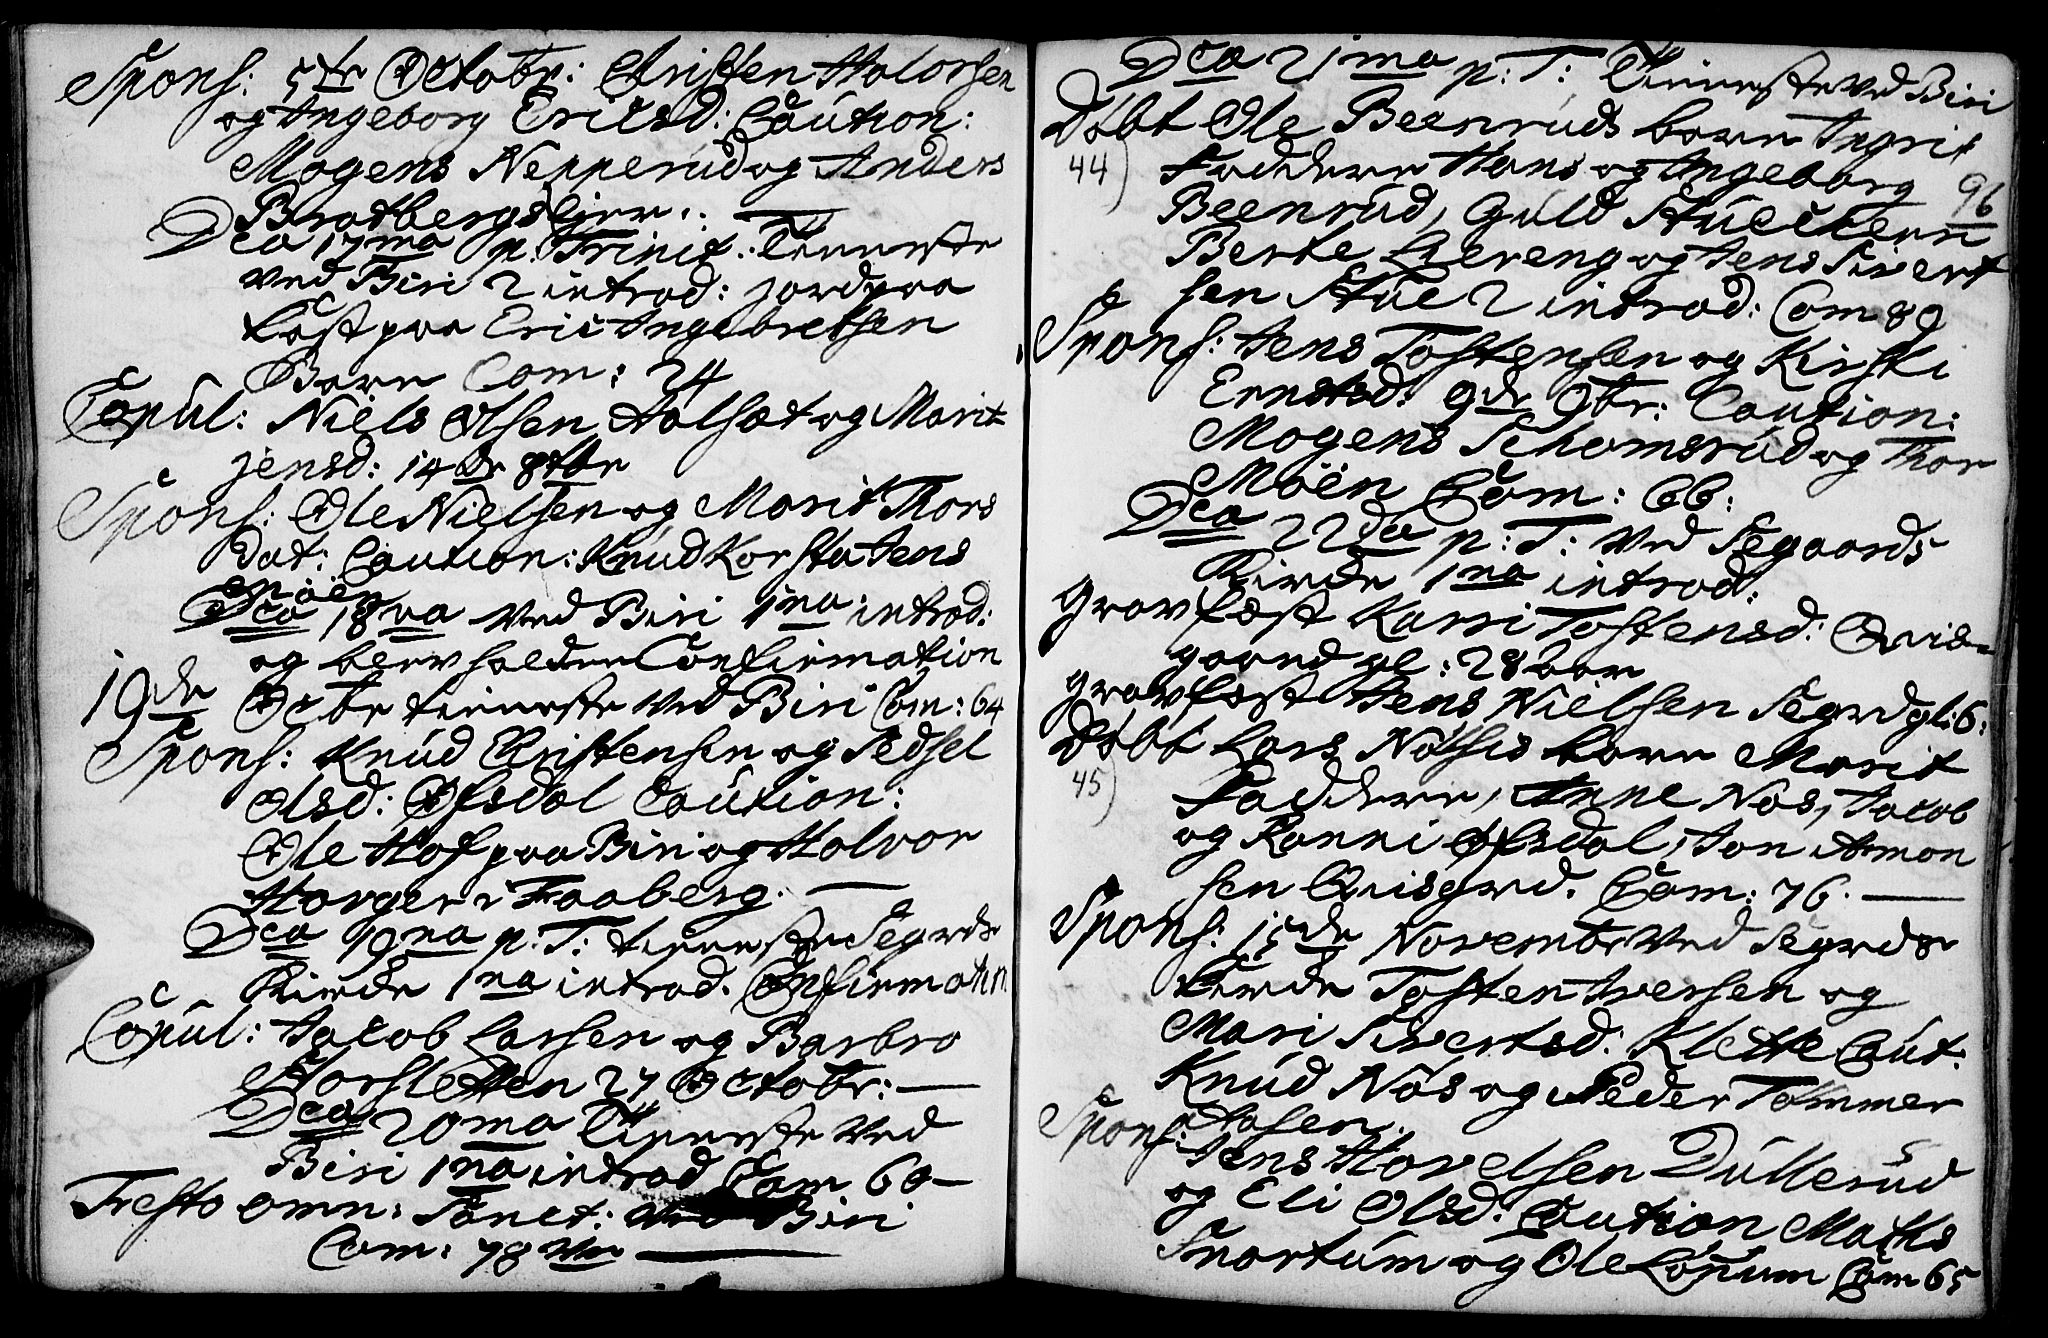 Spons: 5te Octobr: Christen Halvorsen
og Ingeborg Ericsd: Caution:
Mogens Nepperud og Anders
Bratbergshier.
Dca 17ma p. Trinit. Tieneste
ved Biri 2 introd: jordpaa
kast paa Eric Ingebretsen
Barn Com: 24
Copul: Niels Olsen Halset og Marit
jensd: 14de 8tbr
Spons: Ole Nielsen og Marit Thors
dat: Caution: Knud Korsta Jens
Möen
Dca 18va ved Biri 1na introd:
og blev holden Confirmation
19de Octbr tieneste ved Biri Com: 64
Spons: Knud Christensen og Sedsel
Olsd: Ofsdal Caution:
Ole Hof paa Biri og Halvor
Horgen i Faaberg.
Dca 19na p: T: tieneste Segrds
Kirche 1na introd. Confirmation
Copul: Jacob Larsen og Barbro
Horsletten 27 Octobr:
Dca 20ma Tieneste ved
Biri 1na introd Com 60
Festo omn: Sanct: ved Biri
Com: 78
Dca 21ma p: T: Tieneste ved Biri
Döbt Ole Beenruds barn Ingrit
44) Faddere Hans og Ingeborg
96
Beenrud, Guld Stuckern
Berte Lereng og Jens Sivert
sen Stue 2 introd: Com 89
Spons: Jens Tostensen og Kirsti
Ernstsd: 9de 9br: Caution:
Mogens Schomsrud og Thor
Möen Com: 66:
Dca 22da p: T: ved Segaards
Kirche 1na introd:
gravfæst Karri Tostensd: Qvis-
gaard gl: 28 aar
gravfæst Jens Nielsen Segrd gl: 6:
Döbt Lars Nöthis barn Marit
45) Faddere, Anne Nös, Jacob
og Ranni Ofsdal, Jon Amon
sen Qvisgrd. Com: 76.
Spons: 15de Novembr ved Segrds
Kirche Tosten Iversen og
Mari Sivertsd: Klette Caut:
Knud Nös og Peder Tömmer
hasen.
Spons: Jens Hovelsen Dullerud
og Eli Olsd: Caution Maths
Snortum og Ole Löpum Com 65